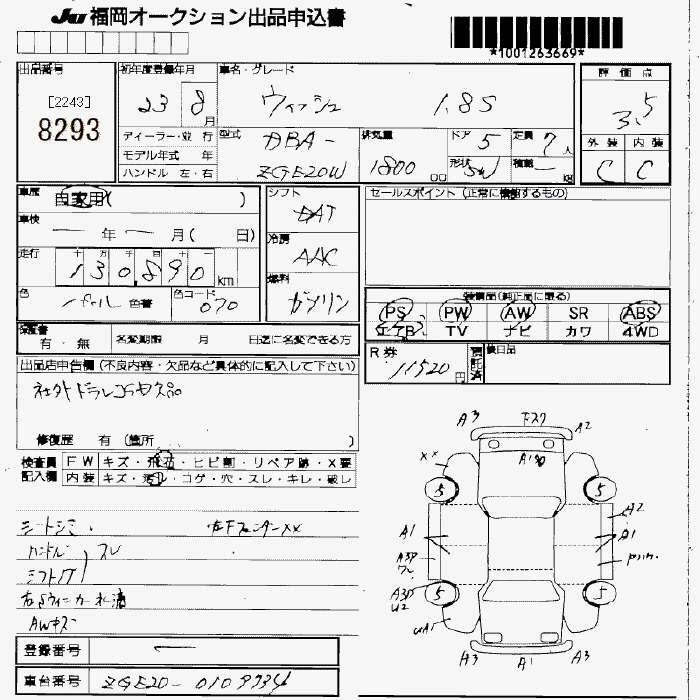 JU 福岡オークション出品申込書
*1001263669*
出品番号 初年度登録年月 車名・グレード 評価点
[2243]
8293
23 8月 ウィッシュ 1.8S 3.5
ディーラー・並行 型式 DBA- 排気量 ドア 5 定員 7人 外装 内装
モデル年式 年
ハンドル 左・右 ZGE20W 1800 cc 形状 SW 積載 - kg C C
車歴 自家用( ) シフト セールスポイント(正常に機能するもの)
DAT
車検 ー年ー月( 日) 冷房
AAC
走行 十 万 千 百 十
130,890 km 燃料
ガソリン
色 パール 色番 色コード 070
装備品(純正品に限る)
PS PW AW SR ABS
エアB TV ナビ カワ 4WD
保証書 有・無 名変期限 月 日迄に名変できる方
R券 11520円 預託済 後日品
出品店申告欄(不良内容・欠品など具体的に記入して下さい)
社外ドラレコラヤス品
修復歴 有(箇所 )
検査員 FW キズ・飛石・ヒビ割・リペア跡・X要
記入欄 内装 キズ・汚れ・コゲ・穴・スレ・キレ・破レ
シートシミ 左Fフェンダーxx
ハンドル スレ
シフトノブ
AWキズ
A3 下スク A2
xx A1
5 5
A1 A2 A1
A3P
A3P U2 5 5
UA1
A3 A1 A3
登録番号 ー
車台番号 ZGE20-